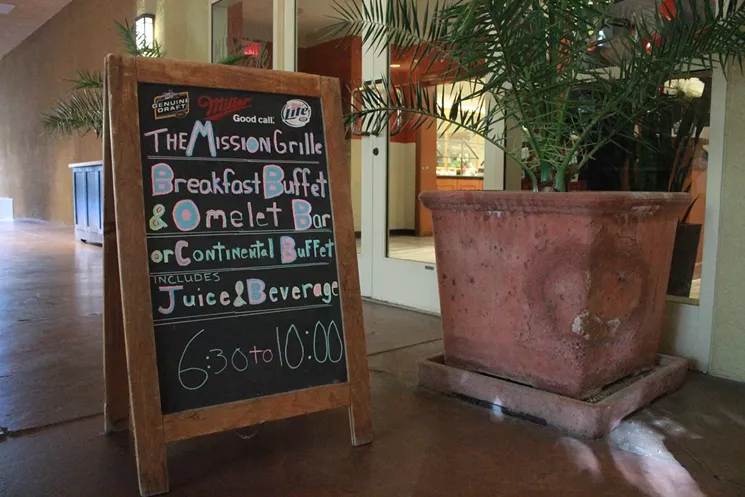 GENUINE DRAFT
Miller
Good call.
Lite
THE MISSION GRILLE
Breakfast Buffet
& Omelet Bar
or Continental Buffet
INCLUDES
Juice & Beverage
6:30 to 10:00